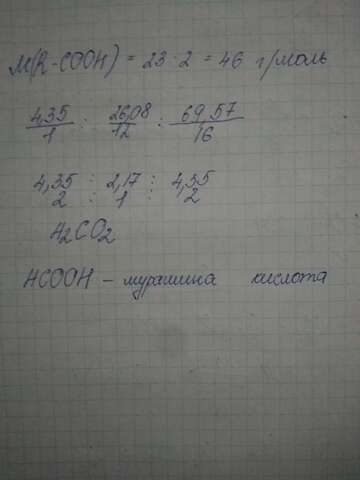 M(R-COOH) = 23·2 = 46 г/моль
4,35/1 : 26,08/12 : 69,57/16
4,35 : 2,17 : 4,35
2 : 1 : 2
H₂CO₂
HCOOH – мурашина кислота